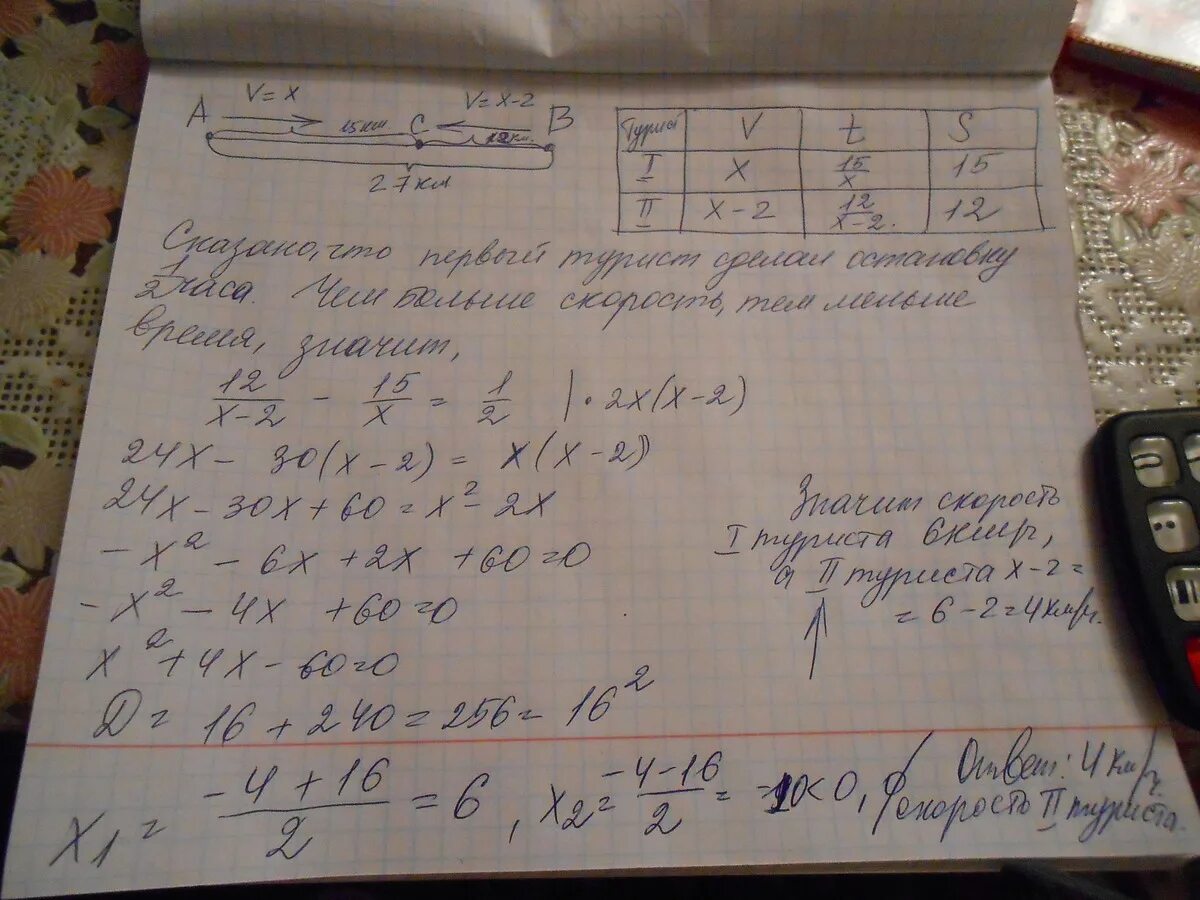 V = x V = x-2
A 15 км C 12 км B
27 км
Турист V t S
I x 15/x 15
II x-2 12/(x-2). 12
Сказано, что первый турист сделал остановку
1/2 часа. Чем больше скорость, тем меньше
время, значит,
12/(x-2) - 15/x = 1/2 | · 2x(x-2)
24x - 30(x-2) = x(x-2)
24x - 30x + 60 = x² - 2x
-x² - 6x + 2x + 60 = 0
-x² - 4x + 60 = 0
x² + 4x - 60 = 0
D = 16 + 240 = 256 = 16²
x₁ = (-4+16)/2 = 6, x₂ = (-4-16)/2 = -10 < 0,
Значит скорость
I туриста 6 км/ч,
а II туриста x-2 =
= 6-2 = 4 км/ч.
Ответ: 4 км/ч.
(скорость II туриста.